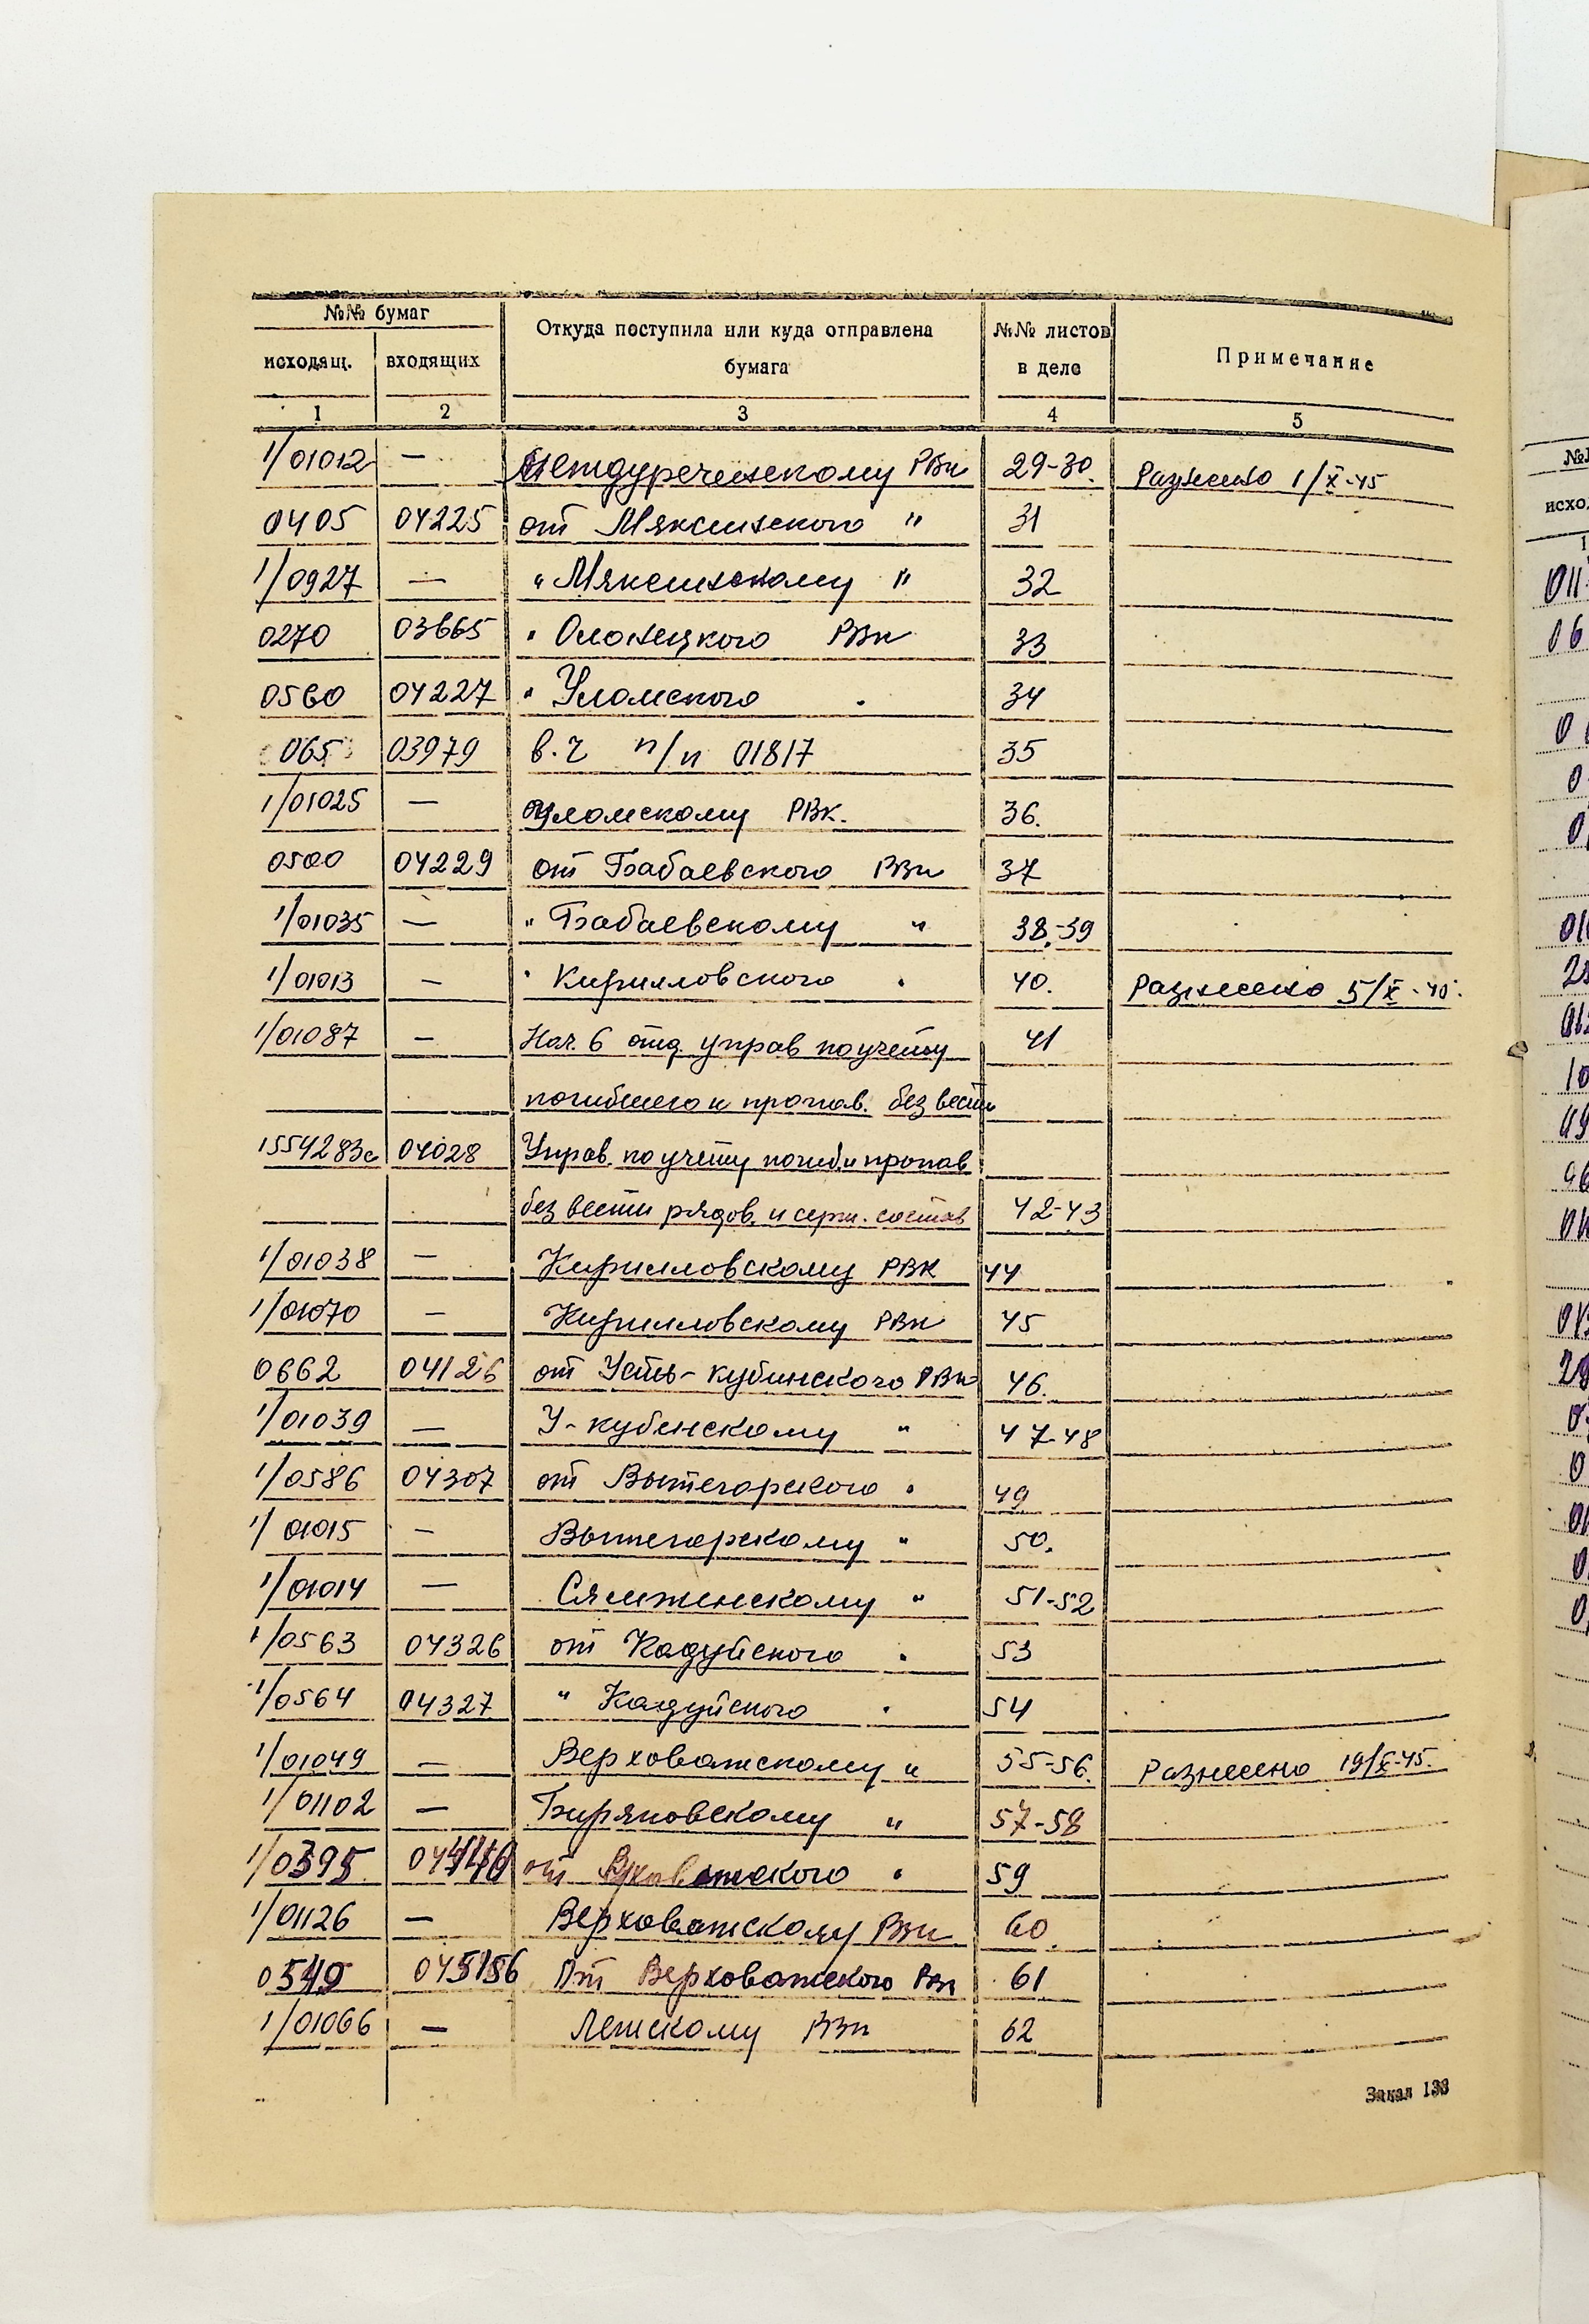 №№ бумаг
исходящ. входящих Откуда поступила или куда отправлена бумага №№ листов в деле Примечание
1 2 3 4 5
1/01012 — Междуреченскому РВк 29-30. Разнесено 1/X-45
0405 04225 от Мяксинского " 31
1/0927 — " Мяксинскому " 32
0270 03665 " Олонецкого РВк 33
0560 04227 " Уломского " 34
065 03979 в.ч п/п 01817 35
1/01025 — Уломскому РВк. 36.
0500 04229 от Бабаевского РВк 37
1/01035 — " Бабаевскому " 38-39
1/01013 — " Кирилловского " 40. Разнесено 5/X-45.
1/01087 — Нач. 6 отд. управ по учету 41
погибшего и пропав. без вести
1554283с 04028 Управ. по учету погиб. и пропав
без вести рядов. и серж. состав 42-43
1/01038 — Кирилловскому РВК 44
1/01070 — Кирилловскому РВк 45
0662 04126 от Усть-кубинского РВк 46.
1/01039 — У-кубинскому " 47-48
1/0586 04307 от Вытегорского " 49
1/01015 — Вытегорскому " 50.
1/01014 — Сямженскому " 51-52
1/0563 04326 от Кадуйского " 53
1/0564 04327 " Кадуйского " 54
1/01049 — Верховажскому " 55-56. Разнесено 19/X-45.
1/01102 — Биряковскому " 57-58
1/0395 от " 59
1/01126 — Верховажскому РВк 60.
От Верховажского РВк 61
1/01066 — Лежскому РВк 62
Заказ 133